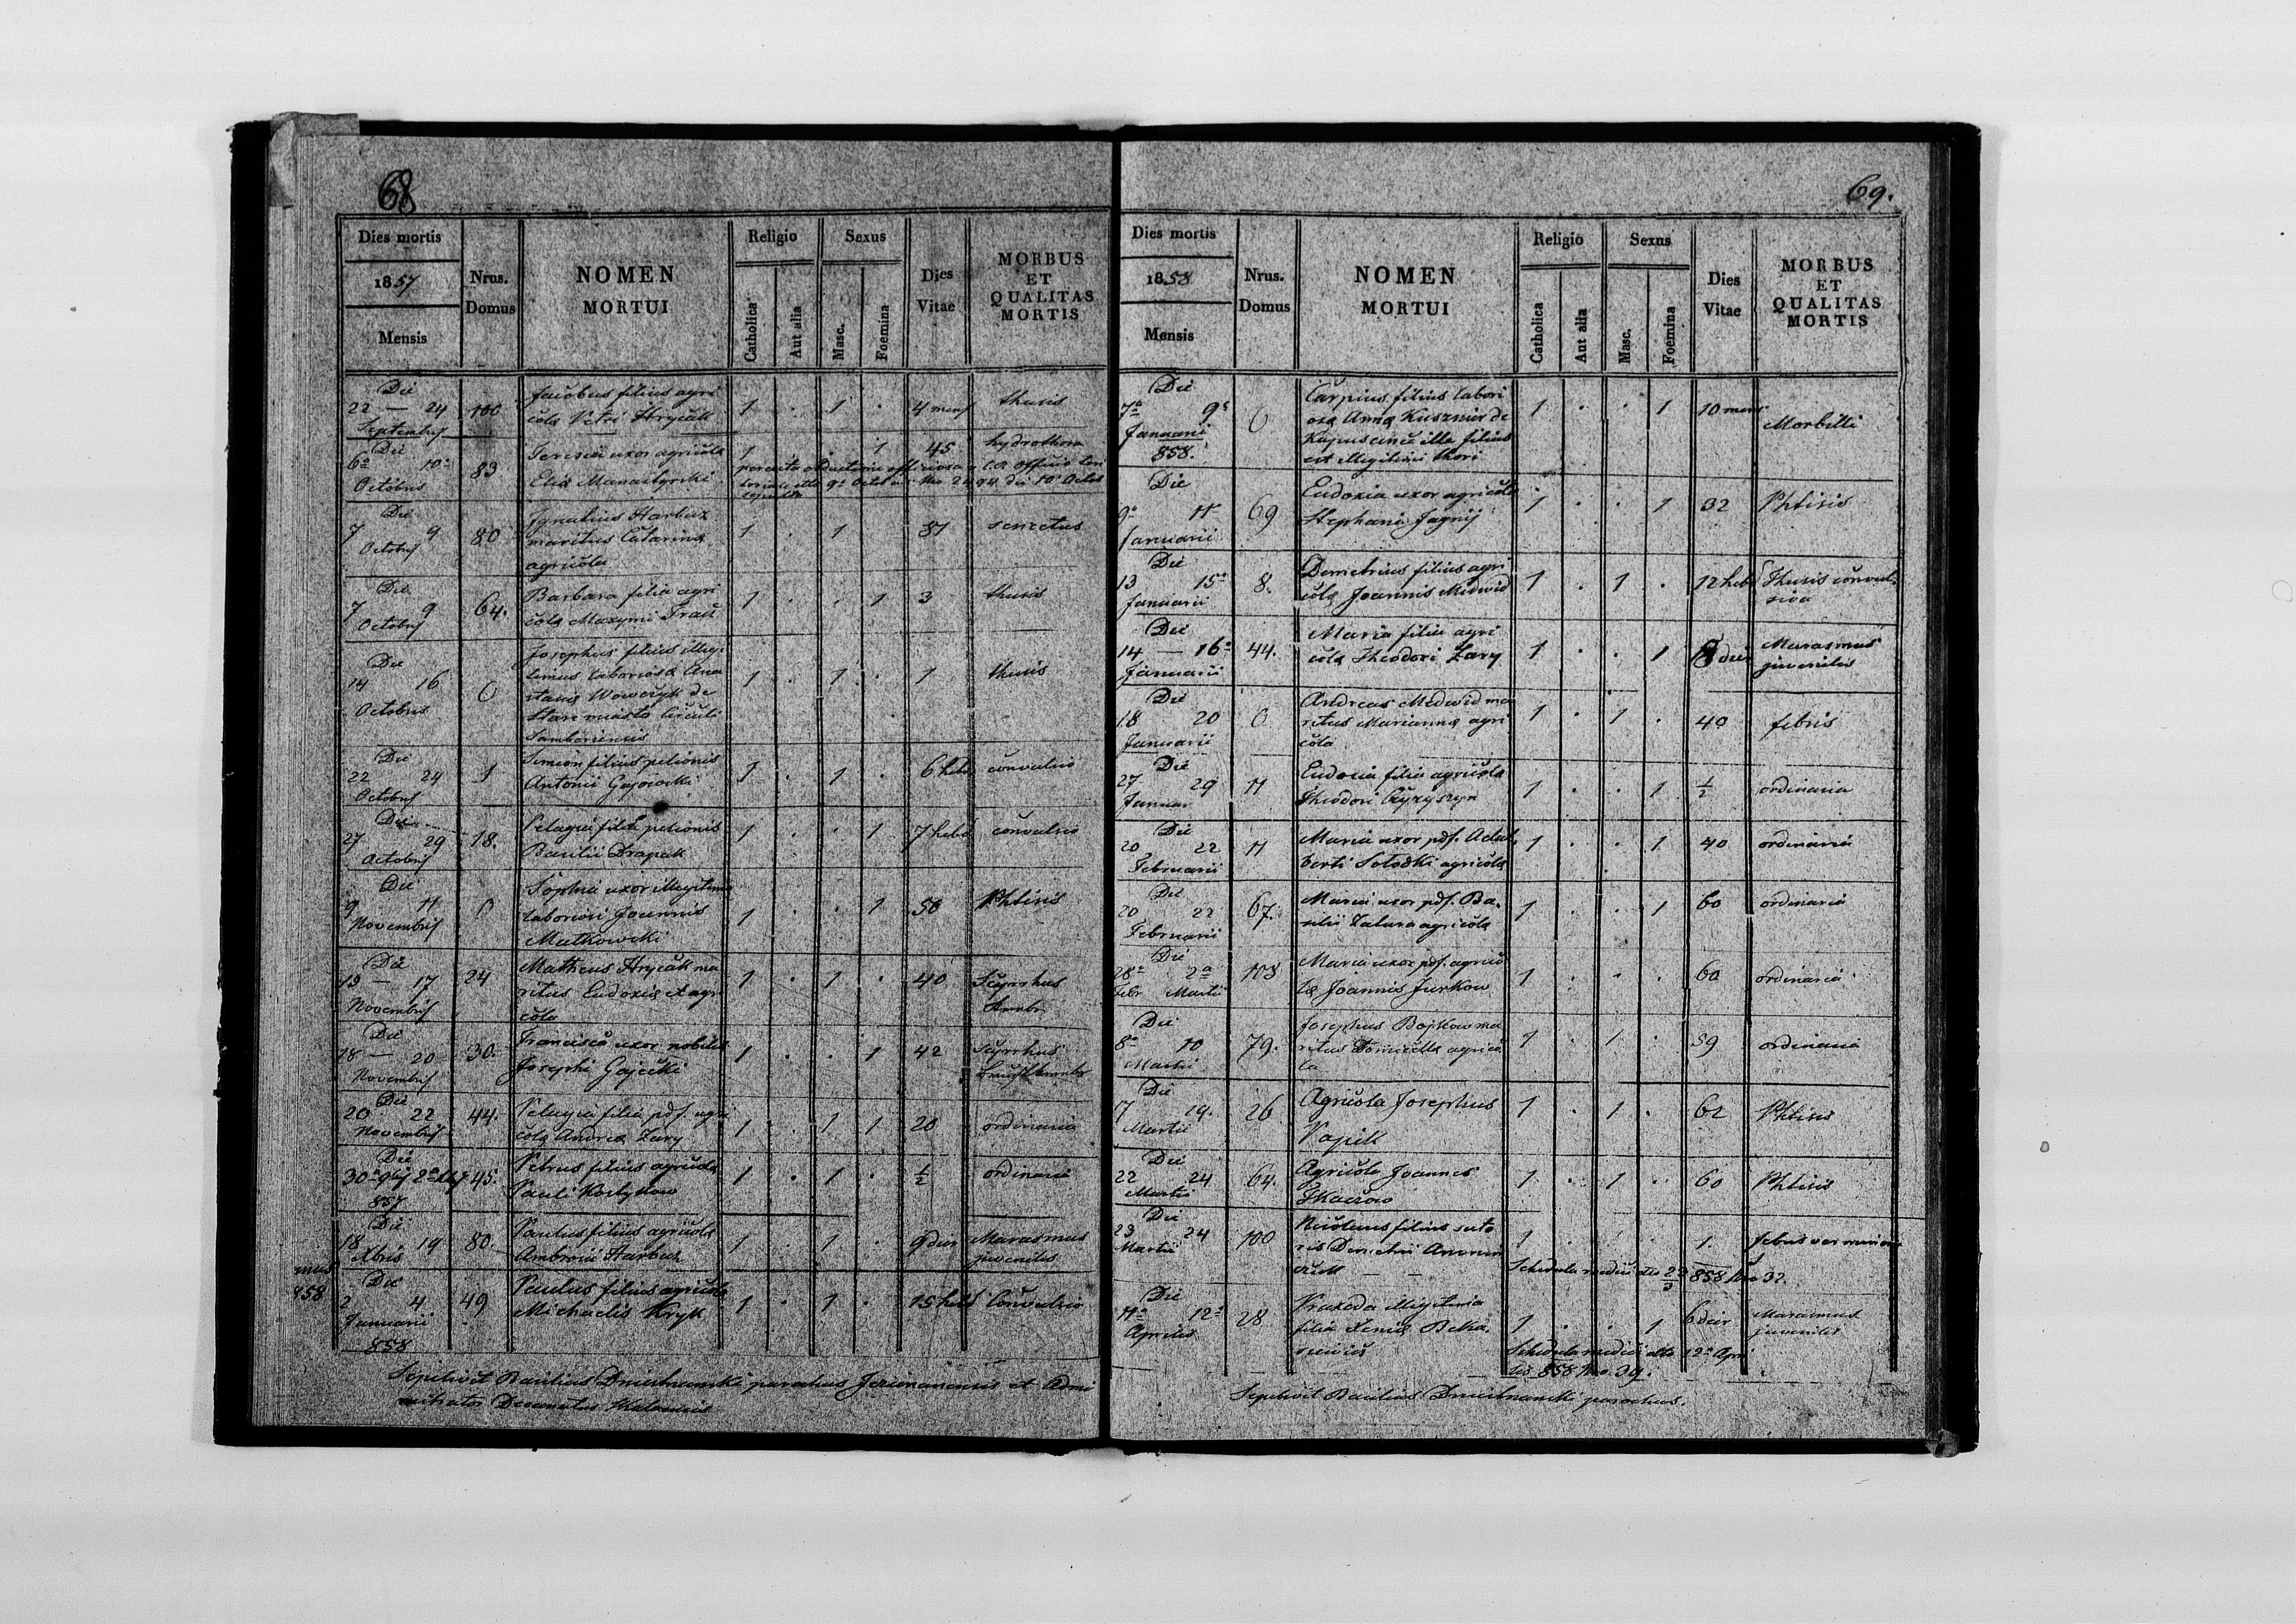 68
Dies mortis
1857
Mensis
Nrus. Domus
NOMEN
MORTUI
Religio
Catholica
Aut alia
Sexus
Masc.
Foemina
Dies
Vitae
MORBUS
ET
QUALITAS
MORTIS
Die
22 — 24
Septembris
100
Jacobus filius agri
colae Petri Hrycak
1 . 1 .
4 mens
thusis
Die
6a 10a
Octobris
83
Teresia uxor agricolae
Eliae Manastyrski
1 . . 1
45
hydrothora
Die
7 9
Octobris
80
Ignatius Harbuz
maritus Catarinae
agricola
1 . 1
81
senectus
Die
7 9
Octobris
64.
Barbara filia agri
colae Maxymi Tracz
1 . . 1
3
thusis
Die
14 16
Octobris
0
Josephus filius illegi
timus laboriosae Ana
staciae Wowczyk de
Stare miasto Circuli
Samboriensis
1 . 1 .
1
thusis
Die
22 24
Octobris
1
Simeon filius pelionis
Antonii Gajowski
1 . 1 .
6 hebd
convulsio
Die
27 29
Octobris
18.
Pelagia filia pelionis
Basilii Drapak
1 . . 1
7 hebd
convulsio
Die
9 11
Novembris
0
Sophia uxor illegitima
laboriosi Joannis
Matkowski
1 . . 1
50
Phtisis
Die
13 — 17
Novembris
24
Matheus Hrycak ma
ritus Eudoxiae et agri
cola
1 . 1 .
40
Scyrrhus
Die
18 — 20
Novembris
30.
Francisca uxor nobilis
Josephi Gajecki
1 . . 1
42
Scyrrhus
Die
20 22
Novembris
44.
Pelagia filia pdf. agri
colae Andreae Zary
1 . 1 1
20
ordinaria
Die
30a 9bij 2a
857
45.
Petrus filius agricolae
Pauli Kostykow
1 . 1 .
½
ordinaria
Die
18 Xbris 19
80.
Paulus filius agricolae
Ambrosii Harbuz
1 1 .
9 dies
Marasmus
juvenilis
858
Die
2 4
Januarii
858
49
Paulus filius agricolae
Michaelis Kryk
1 . 1 .
15 hebd
Convulsio
Sepelivit Basilius Dniestrzanski parochus et Admi
nistrator Decanatus
69.
Dies mortis
1858
Mensis
Nrus.
Domus
NOMEN
MORTUI
Religio
Catholica
Aut alia
Sexus
Masc.
Foemina
Dies
Vitae
MORBUS
ET
QUALITAS
MORTIS
Die
7a 9a
Januarii
858.
0
Carpius filius labori
osae Annae Kusznier de
Kapuscince ille filius
est illegitimi thori
1 . . 1
10 mens
Morbilli
Die
9a 11
Januarii
69
Eudoxia uxor agricolae
Stephani Jagnij
1 . . 1
32
Phtisis
Die
13 15a
Januarii
8.
Demetrius filius agri
colae Joannis Medwid
1 . 1 .
12 hebd
Thusis convul
siva
Die
14 — 16a
Januarii
44.
Maria filia agri
colae Theodori Zary
1 . . 1
8 dies
Marasmus
juvenilis
Die
18 20
Januarii
0
Andreas Medwid ma
ritus Mariannae agri
cola
1 . 1 .
40
febris
Die
27 29
Januar
11
Eudoxia filia agricolae
Theodori
1 . . 1
½
ordinaria
Die
20 22
Februarii
11
Maria uxor pdf. Adal
berti Solodki agricolae
1 . . 1
40
ordinaria
Die
20 22
Februarii
67.
Maria uxor pdf. Ba
silii Zatura agricolae
1 . . 1
60
ordinaria
Die
28a 2a
Febr Martii
103
Maria uxor pdf. agrico
lae Joannis Jurkow
1 . . .
60
ordinaria
Die
8a 10
Martii
79.
Josephus Bojkow ma
ritus Domicellae agrico
la
1 . 1 .
59
ordinaria
Die
17 19.
Martii
26
Agricola Josephus
Papik
1 . 1 .
62
Phtisis
Die
22 24
Martii
64.
Agricola Joannes
Tkaczow
1 . 1 .
60
Phtisis
Die
23 24
Martii
100
Nicolaus filius suto
ris Demetrii
1 . 1
1.
febris verminosa
Schedula medici dto 23/3 858 Nro 32.
Die
11a 12a
Aprilis
28
Praxeda illegitima
filia Xeniae
1 . . 1
6 dies
Marasmus
juvenilis
Schedula medici dto 12a Apri
lis 858 Nro 39.
Sepelivit Basilius Dniestrzanski parochus.